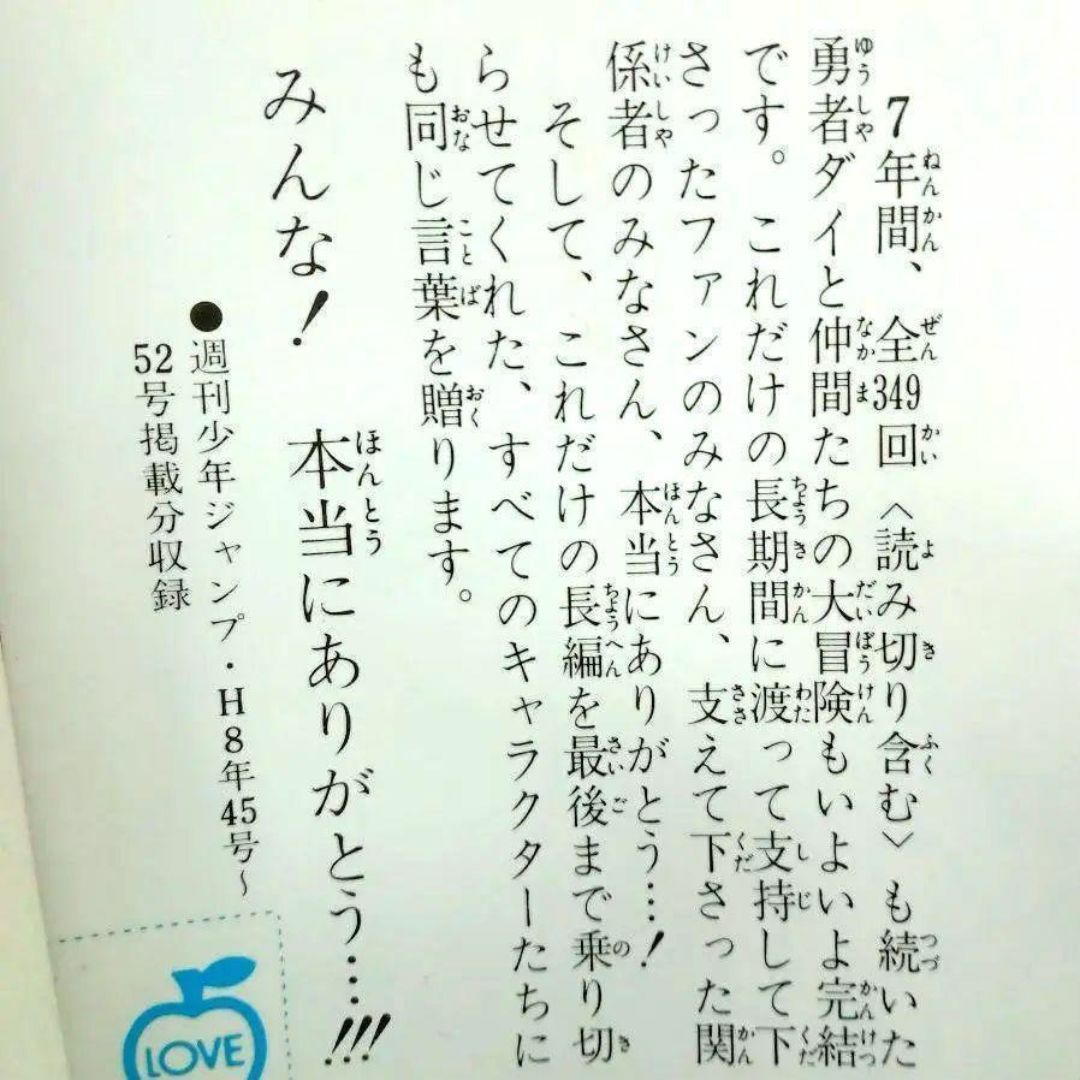 7年間、全349回〈読み切り含む〉も続いた
勇者ダイと仲間たちの大冒険もいよいよ完結
です。これだけの長期間に渡って支持して下
さったファンのみなさん、支えて下さった関
係者のみなさん、本当にありがとう…!
そして、これだけの長編を最後まで乗り切
らせてくれた、すべてのキャラクターたちに
も同じ言葉を贈ります。
みんな! 本当にありがとう…!!!
●週刊少年ジャンプ・H8年45号~
52号掲載分収録
LOVE